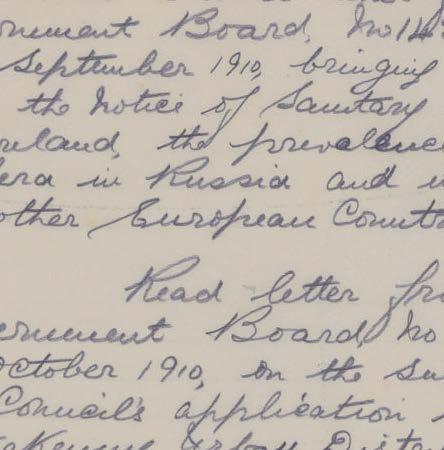 ernment Board, No 14
September 1910, bringing
the Notice of Sanitary
reland, the prevalence
lera in Russia and
other European Countr
Read letter fro
ernment Board, No
October 1910, on the su
Council's application
Urban Distr